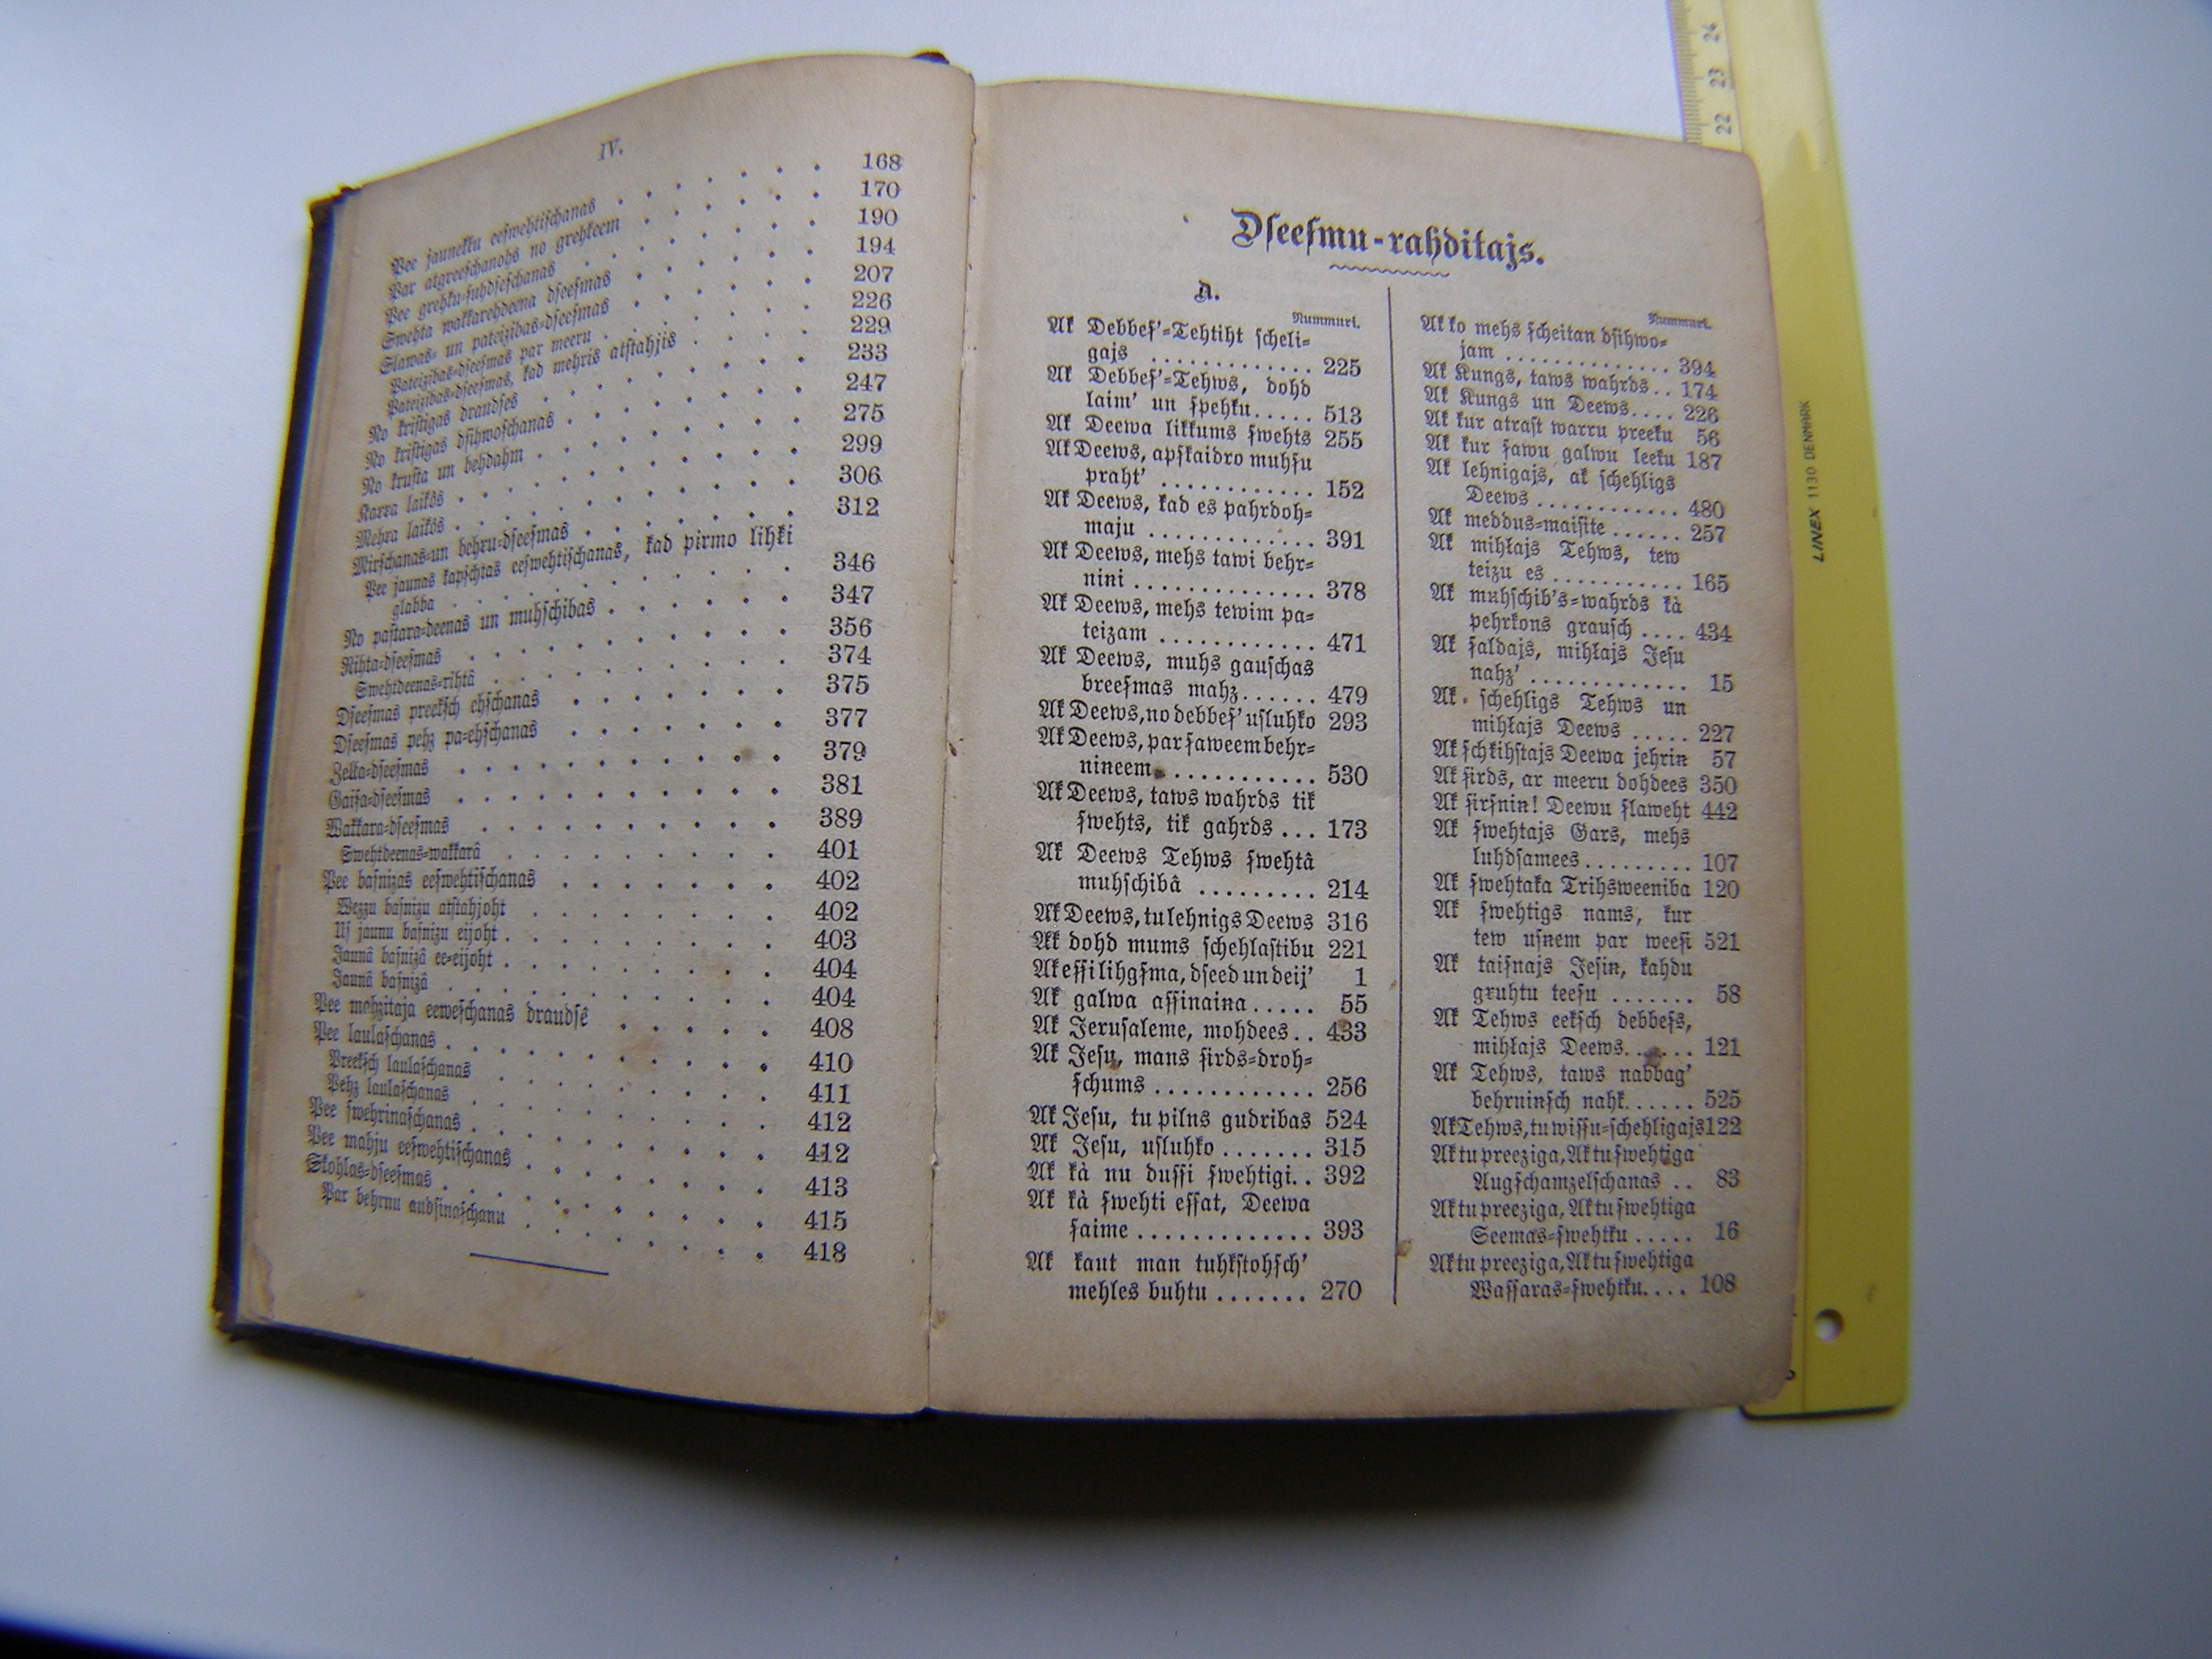 IV.
Pee jaunekku eeſwehtiſchanas . . . . . . . 168
Par atgreeſchanohs no grehkeem . . . . . . 170
Pee grehku-ſuhdſeſchanas . . . . . . . 190
Swehta wakkarehdeena dſeeſmas . . . . . . 194
Slawas- un pateizibas-dſeeſmas . . . . . . 207
Pateizibas-dſeeſmas par meeru . . . . . . 226
Pateizibas-dſeeſmas, kad mehris atſtahjis . . . . 229
No kriſtigas draudſes . . . . . . . . 233
No kriſtigas dſihwoſchanas . . . . . . . 247
No kruſta un behdahm . . . . . . . . 275
Karra laikôs . . . . . . . . . . 299
Mehra laikôs . . . . . . . . . . 306
Mirſchanas-un behru-dſeeſmas . . . . . . . 312
Pee jaunas kapſchtas eeſwehtiſchanas, kad pirmo lihki
glabba . . . . . . . . . . 346
No paſtara-deenas un muhſchibas . . . . . . 347
Rihta-dſeeſmas . . . . . . . . . . 356
Swehtdeenas-rihtâ . . . . . . . . . 374
Dſeeſmas preekſch ehſchanas . . . . . . . 375
Dſeeſmas pehz pa-ehſchanas . . . . . . . 377
Zelta-dſeeſmas . . . . . . . . . . 379
Gaiſa-dſeeſmas . . . . . . . . . . 381
Wakkara-dſeeſmas . . . . . . . . . 389
Swehtdeenas-wakkarâ . . . . . . . . 401
Pee baſnizas eeſwehtiſchanas . . . . . . . 402
Wezzu baſnizu atſtahjoht . . . . . . . 402
Uſ jaunu baſnizu eijoht . . . . . . . . 403
Jaunâ baſnizâ ee-eijoht . . . . . . . . 404
Jaunâ baſnizâ . . . . . . . . . 404
Pee mahzitaja eeweſchanas draudſê . . . . . 408
Pee laulaſchanas . . . . . . . . . . 410
Preekſch laulaſchanas . . . . . . . . 411
Pehz laulaſchanas . . . . . . . . . 412
Pee ſwehrinaſchanas . . . . . . . . . 412
Pee mahju eeſwehtiſchanas . . . . . . . . 413
Skohlas-dſeeſmas . . . . . . . . . . 415
Par behrnu audſinaſchanu . . . . . . . . 418
Dſeeſmu-rahditajs.
A.
Nummuri.
Ak Debbeſ'-Tehtiht ſcheli-
gajs ............ 225
Ak Debbeſ'-Tehws, dohd
laim' un ſpehku..... 513
Ak Deewa likkums ſwehts 255
Ak Deews, apſkaidro muhſu
praht' ............ 152
Ak Deews, kad es pahrdoh-
maju ............. 391
Ak Deews, mehs tawi behr-
nini .............. 378
Ak Deews, mehs tewim pa-
teizam ............ 471
Ak Deews, muhs gauſchas
breeſmas mahz...... 479
Ak Deews, no debbeſ' uſluhko 293
Ak Deews, par ſaweem behr-
nineem............ 530
Ak Deews, taws wahrds tik
ſwehts, tik gahrds ... 173
Ak Deews Tehws ſwehtâ
muhſchibâ ......... 214
Ak Deews, tu lehnigs Deews 316
Ak dohd mums ſchehlaſtibu 221
Ak eſſi lihgſma, dſeed un deij' 1
Ak galwa aſſinaina..... 55
Ak Jeruſaleme, mohdees.. 433
Ak Jeſu, mans ſirds-droh-
ſchums ............ 256
Ak Jeſu, tu pilns gudribas 524
Ak Jeſu, uſluhko ....... 315
Ak kà nu duſſi ſwehtigi.. 392
Ak kà ſwehti eſſat, Deewa
ſaime ............. 393
Ak kaut man tuhkſtohſch'
mehles buhtu ....... 270
Nummuri.
Ak ko mehs ſcheitan dſihwo-
jam ............. 394
Ak Kungs, taws wahrds.. 174
Ak Kungs un Deews.... 226
Ak kur atraſt warru preeku 56
Ak kur ſawu galwu leeku 187
Ak lehnigajs, ak ſchehligs
Deews ............ 480
Ak meddus-maiſite ...... 257
Ak mihłajs Tehws, tew
teizu es ........... 165
Ak muhſchib's-wahrds kà
pehrkons grauſch .... 434
Ak ſaldajs, mihłajs Jeſu
nahz' ............. 15
Ak ſchehligs Tehws un
mihłajs Deews ..... 227
Ak ſchkihſtajs Deewa jehrin 57
Ak ſirds, ar meeru dohdees 350
Ak ſirſnin! Deewu ſlaweht 442
Ak ſwehtajs Gars, mehs
luhdſamees......... 107
Ak ſwehtaka Trihsweeniba 120
Ak ſwehtigs nams, kur
tew uſnem par weeſi 521
Ak taiſnajs Jeſin, kahdu
gruhtu teeſu ....... 58
Ak Tehws eekſch debbeſs,
mihłajs Deews...... 121
Ak Tehws, taws nabbag'
behrninſch nahk...... 525
Ak Tehws, tu wiſſu-ſchehligajs 122
Ak tu preeziga, Ak tu ſwehtiga
Augſchamzelſchanas .. 83
Ak tu preeziga, Ak tu ſwehtiga
Seemas-ſwehtku ..... 16
Ak tu preeziga, Ak tu ſwehtiga
Waſſaras-ſwehtku.... 108
22 23 24
LINEX 1130 DENMARK